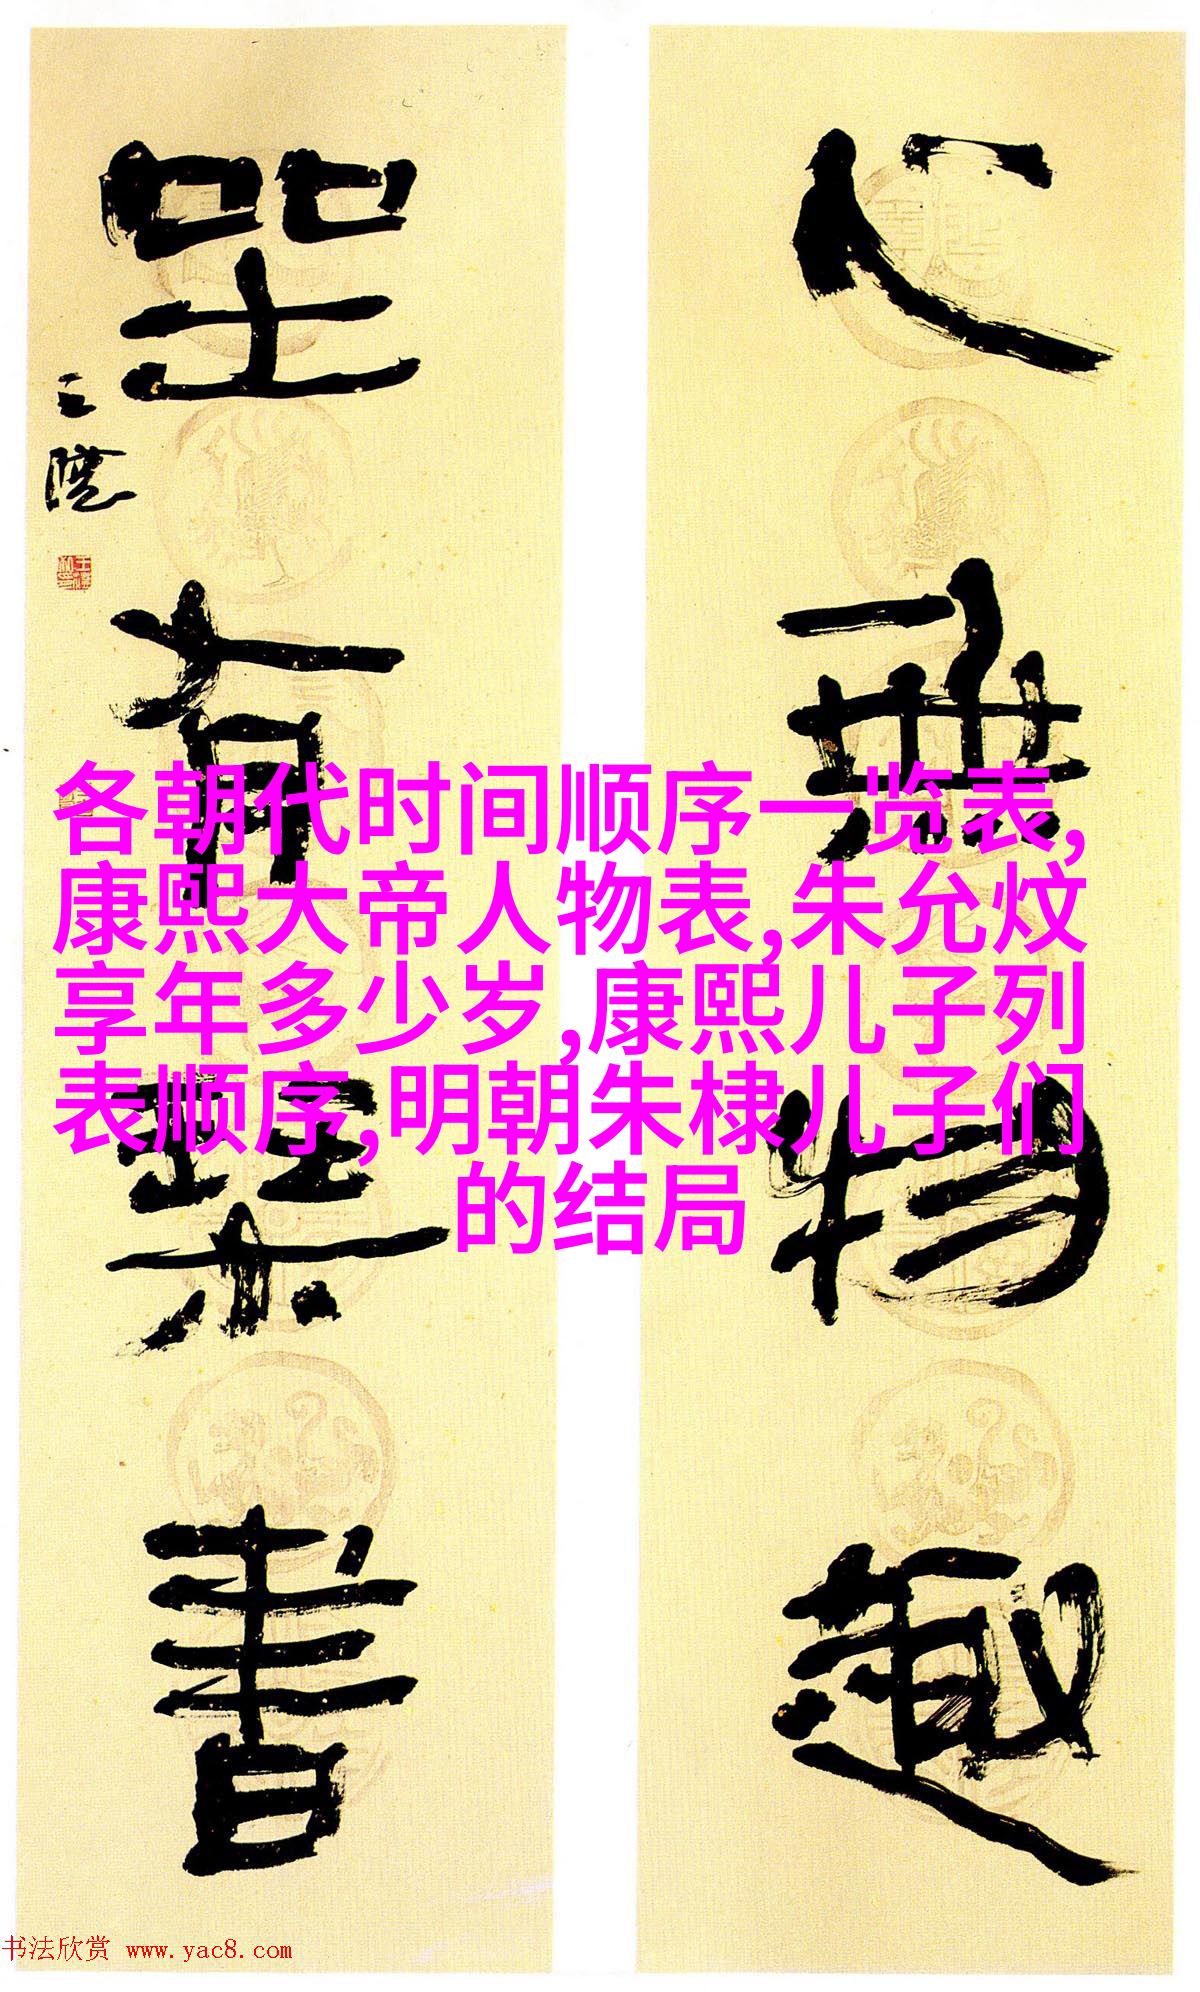 心無物趣
坐有琴書
各朝代时间顺序一览表,
康熙大帝人物表,朱允炆
享年多少岁,康熙儿子列
表顺序,明朝朱棣儿子们
的结局
书法欣赏 www.yac8.com